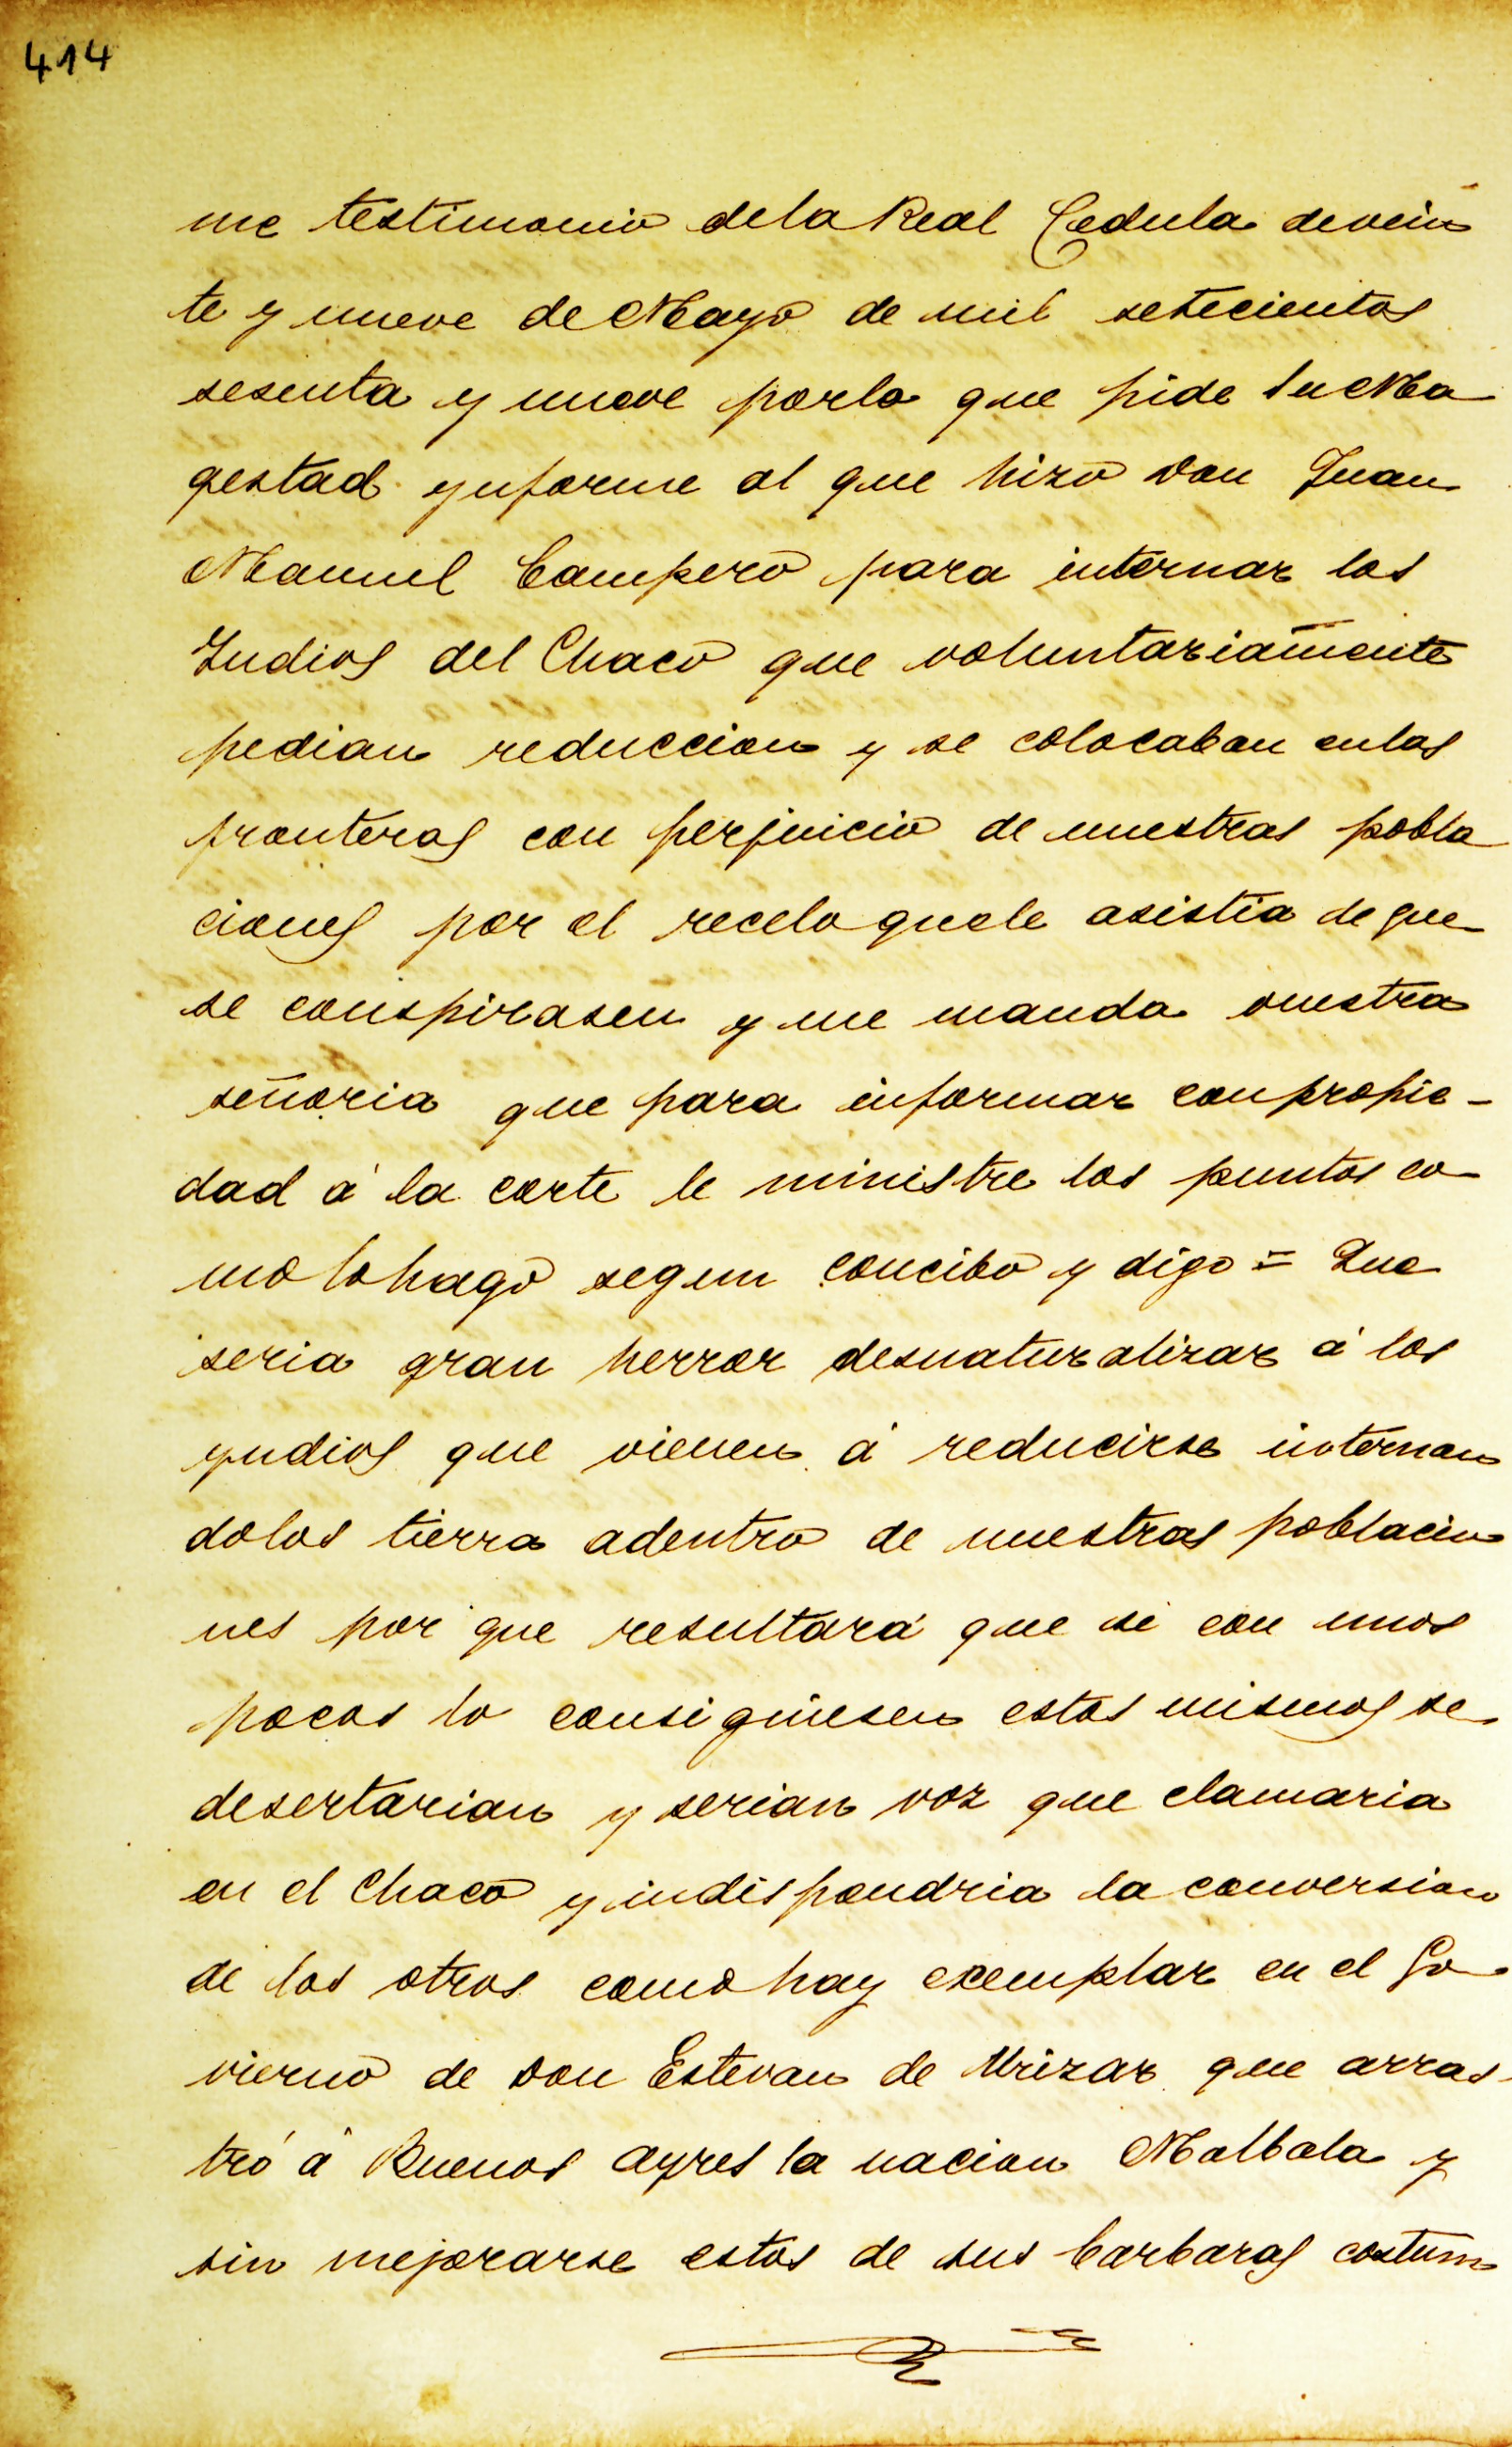 414
me testimonio dela Real Cedula devein
te y nueve de Mayo de mil setecientos
sesenta y nueve porlo que pide su Ma
gestad ynforme al que hizo Don Juan
Manuel Campero para internar los
Indios del Chaco que voluntariamente
pedian reduccion y se colocaban enlas
fronteras con perjuicio de nuestras pobla
ciones por el recelo quele asistia de que
se conspirasen y me manda vuestra
señoria que para informar conpropie-
dad á la corte le ministre los puntos co
mo lohago segun concibo y digo = Que
seria gran herror desnaturalizar á los
yndios que vienen á reducirse internan
dolos tierra adentro de nuestras poblacio
nes por que resultará que si con unos
pocos lo consiguiesen estos mismos se
desertarian y serian voz que clamaria
en el Chaco y indispondria la conversion
de los otros como hay exemplar en el Go
vierno de Don Estevan de Urizar que arras
tró á Buenos ayres la nacion Malbala y
sin mejorarse estos de sus barbaras costum